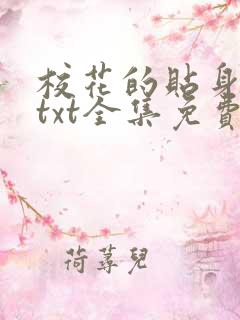 校花的貼身
txt全集免費
荷蕁兒